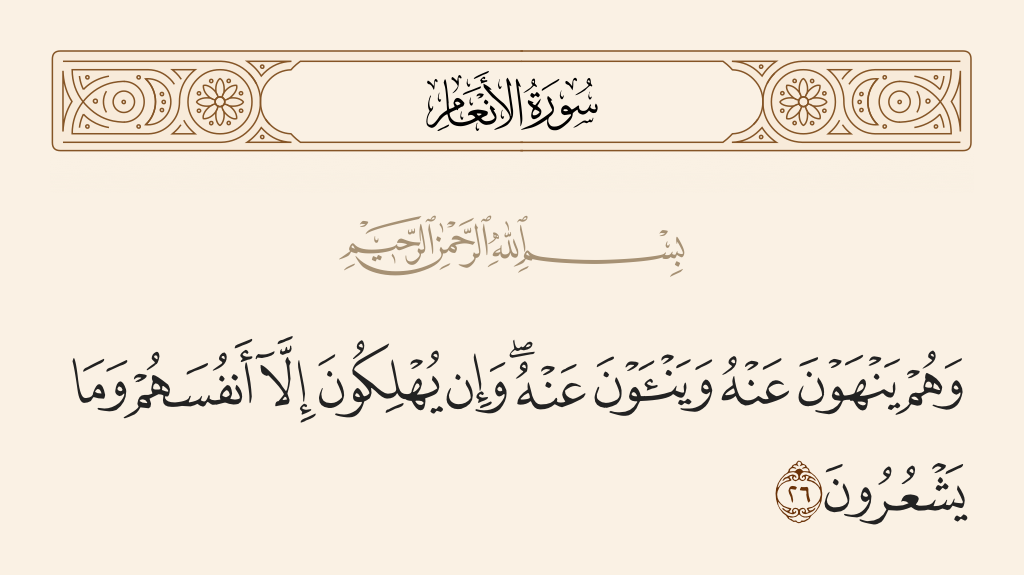 سُورَةُ الأَنْعَامِ
بِسْمِ ٱللَّهِ ٱلرَّحْمَٰنِ ٱلرَّحِيمِ
وَهُمْ يَنْهَوْنَ عَنْهُ وَيَنْـَٔوْنَ عَنْهُ ۖ وَإِن يُهْلِكُونَ إِلَّآ أَنفُسَهُمْ وَمَا
يَشْعُرُونَ ٢٦